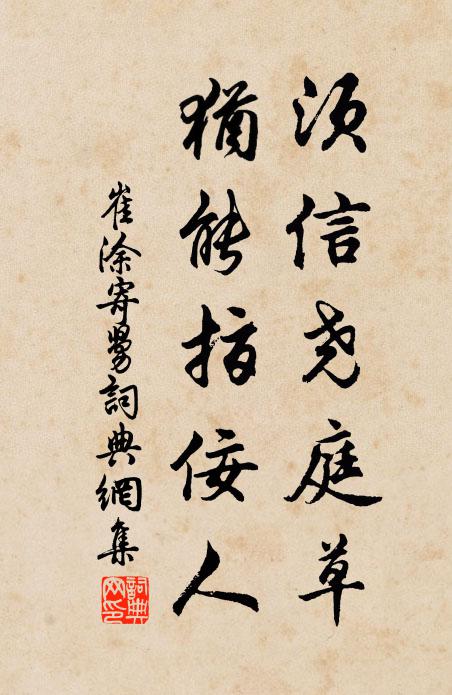 須信尧庭草
猶能指佞人
崔涂寄舅詞典網集
詞典网印